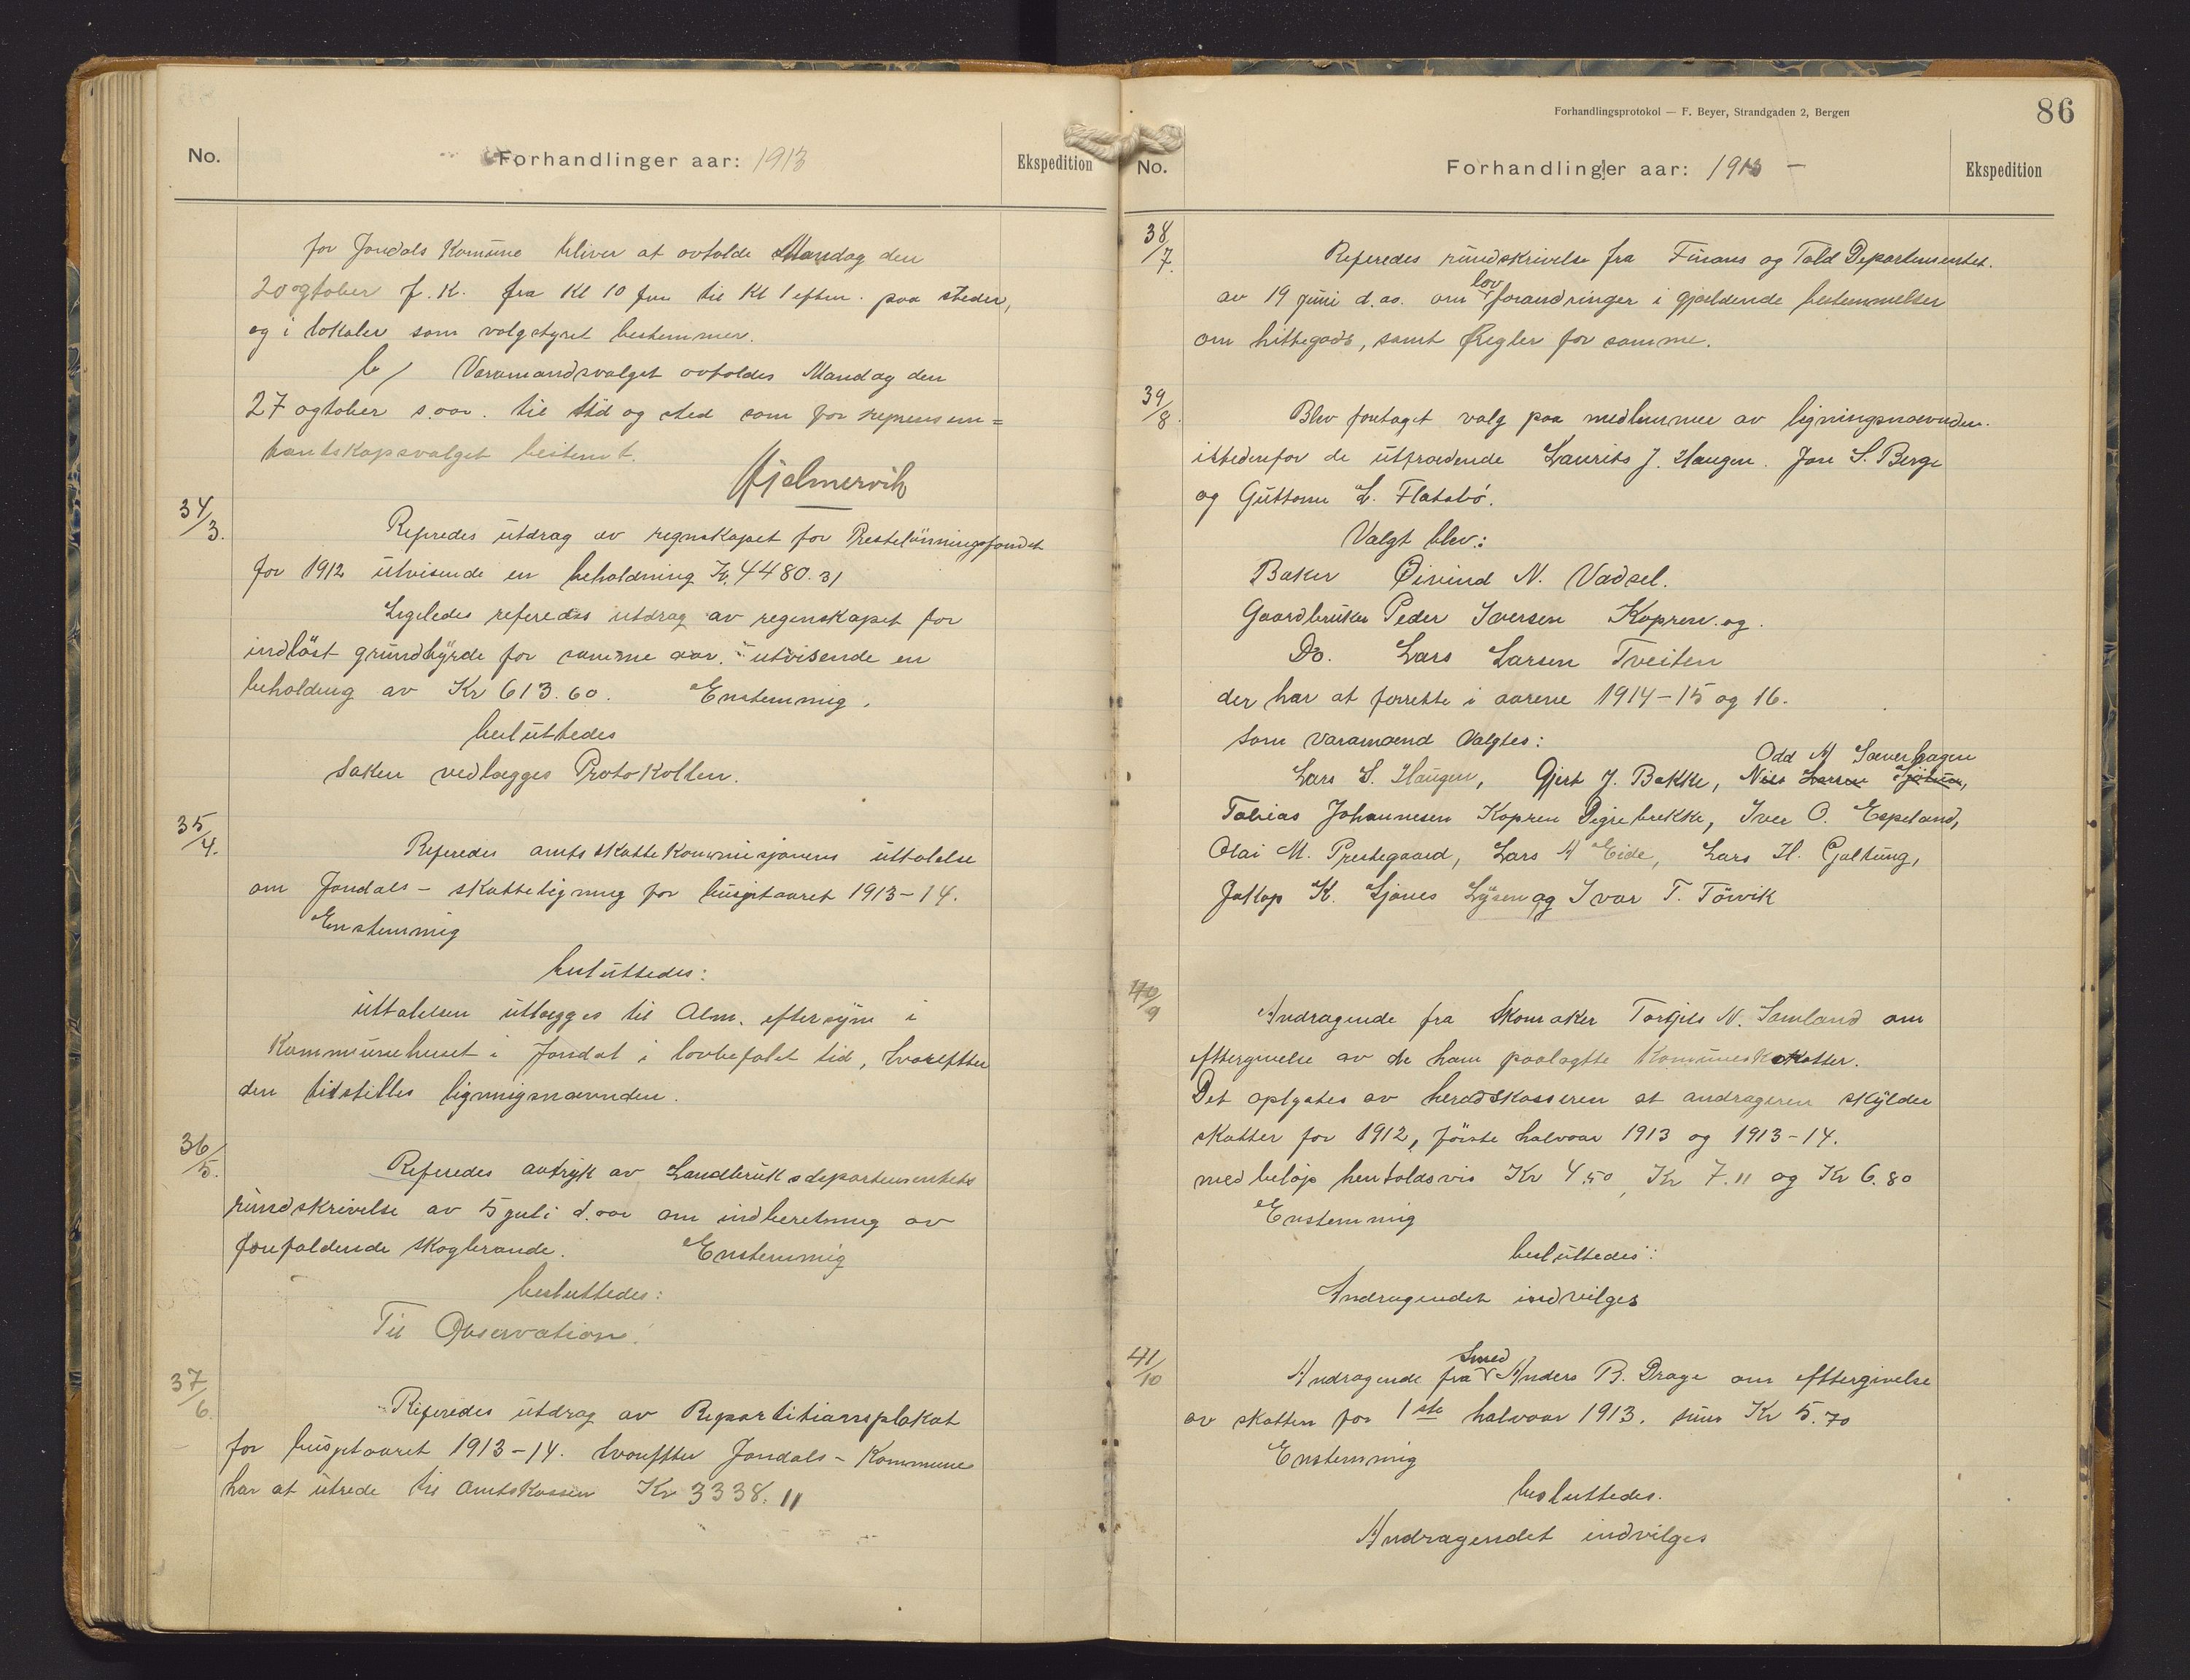 No.
Forhandlinger aar: 1913
Ekspedition
for Jondals Komune bliver at avholde Mandag den
20 ogtober f. K. fra Kl 10 fm til Kl 1 eftm. paa steder,
og i lokaler som valgstyret bestemmer.
b/ Varamandsvalget avholdes Mandag den
27 ogtober s. aar. til tid og sted som for represen=
tantskapsvalget bestemt.
Hjelmervik
34/3.
Refredes utdrag av regnskapet for Prestelönningsfondet
for 1912 utvisende en beholdning Kr. 4480.31
Ligeledes referedes utdrag av regenskapet for
indlöst grundbyrde for samme aar. utvisende en
beholding av Kr 613.60. Enstemmig,
besluttedes
Saken vedlægges Protokollen.
35/4.
Referedes amtsskattekommisjonens uttalelse
om Jondals - skatteligning for busjetaaret 1913-14.
Enstemmig
besluttedes:
uttalelsen utlægges til Alm. eftersyn i
Kommunehuset i Jondal i lovbefalet tid, hvorefter
den tilstilles ligningsnævnden.
36/5.
Referedes avtryk av Landbruksdepartementets
rundskrivelse av 5 juli d. aar om indberetning av
forefaldende skogbrande. Enstemmig
besluttedes:
Til Observation.
37/6.
Referedes utdrag av Repartitionsplakat
for busjetaaret 1913-14. hvorefter Jondals - Kommune
har at utrede til amtskassen Kr 3338.11
Forhandlingsprotokol — F. Beyer, Strandgaden 2, Bergen
86
No.
Forhandlinger aar: 1913 -
Ekspedition
38/7.
Referedes rundskrivelse fra Finans og Told Departementet.
lov
av 19 juni d. aa. om forandringer i gjældende bestemmelser
om hittegods, samt Regler for samme.
39/8.
Blev foretaget valg paa medlemmer av ligningsnævnden.
istedenfor de uttrædende Laurits J. Haugen. Jon S. Berge
og Guttorm L. Flatabö.
Valgt blev:
Baker Øivind N. Vadsel.
Gaardbruker Peder Iversen Kopren. og.
Do. Lars Larsen Tveiten
der har at forrette i aarene 1914-15 og 16.
Som varamænd valgtes:
Odd A Sæverhagen
Lars S. Haugen, Gjert J. Bakke, Nils Larsen
Tobias Johannesen Kopren Digrebrekke, Iver O. Espeland,
Olai M. Prestegaard, Lars A Eide, Lars H. Galtung,
Jakop K. Ljones Lysen og Ivar T. Törvik
40/9
Andragende fra Skomaker Torgils N. Samland om
eftergivelse av de ham paalagte Komuneskatter.
Det oplystes av heradskasseren at andrageren skylder
skatter for 1912, förste halvaar 1913 og 1913-14.
med belöp henholdsvis Kr 4.50, Kr 7.11 og Kr 6.80
Enstemmig
besluttedes:
Andragendet indvilges
41/10
Smed
Andragende fra Anders B. Drage om eftergivelse
av skatten for 1ste halvaar 1913. sum Kr 5.70
Enstemmig
besluttedes.
Andragendet indvilges